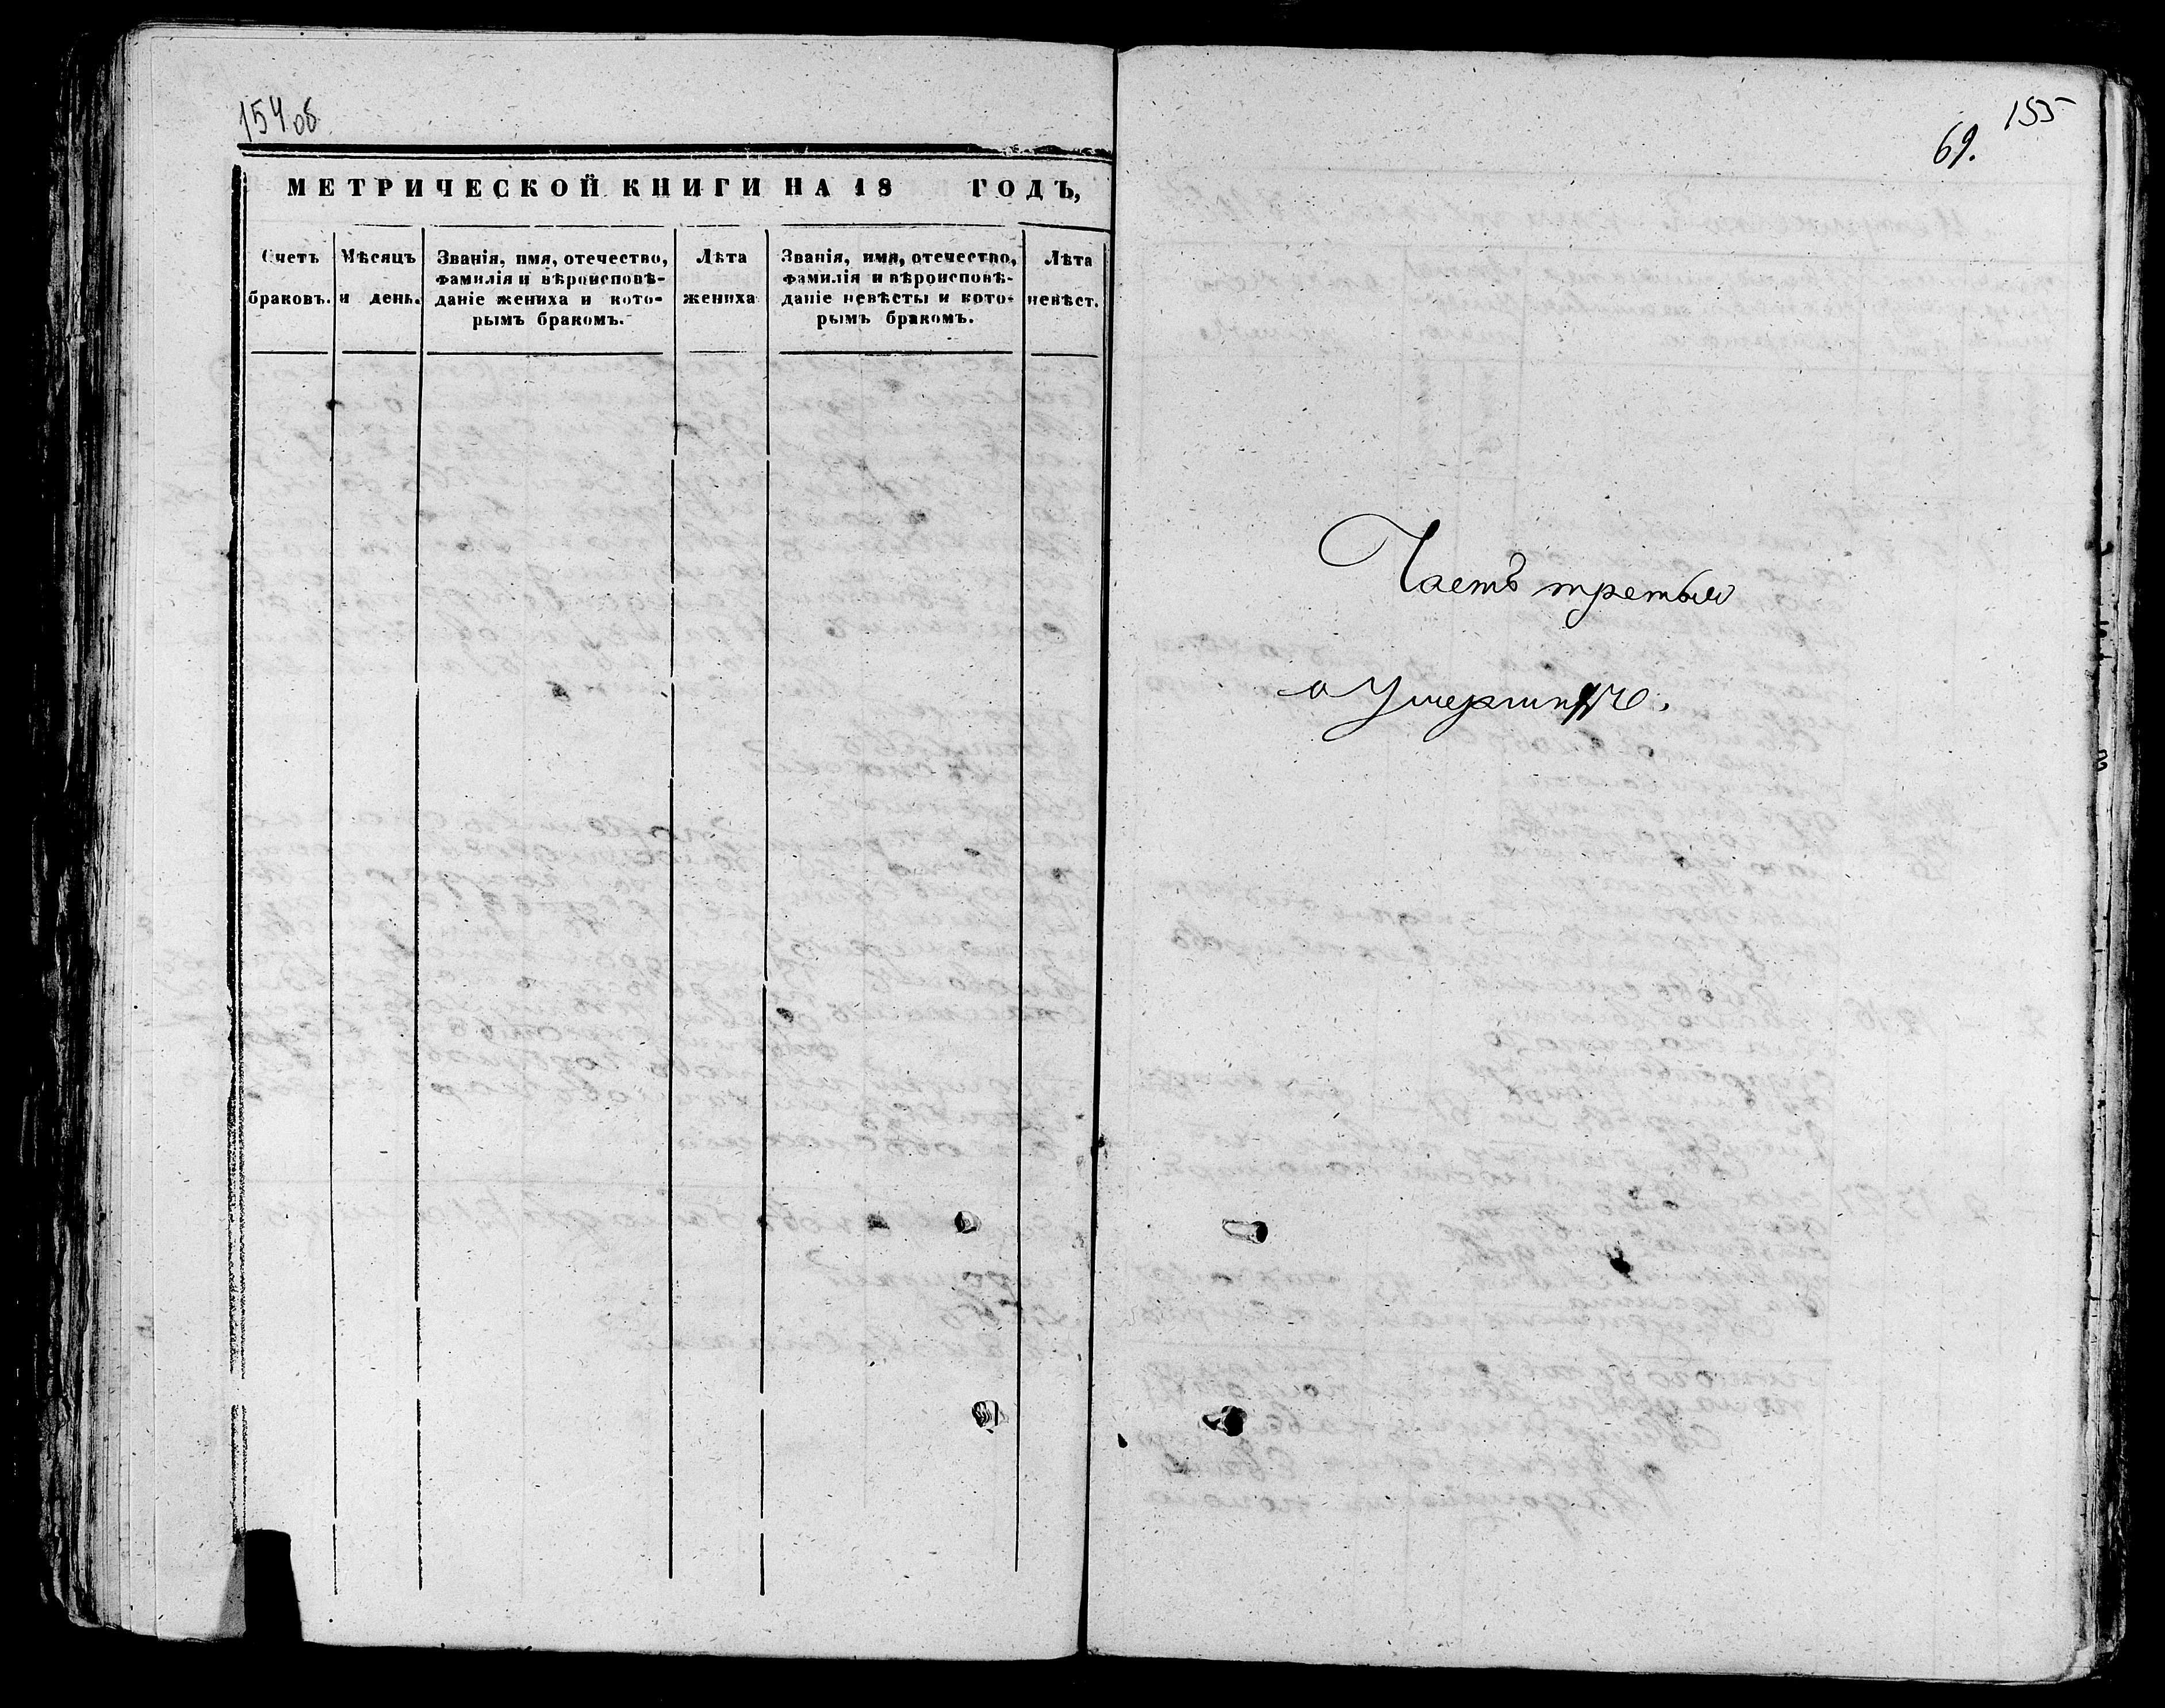 154об
МЕТРИЧЕСКОЙ КНИГИ НА 18 ГОДЪ,
Счетъ браковъ.
Мѣсяцъ и день.
Званія, имя, отечество,
фамилія и вѣроисповѣ-
даніе жениха и кото-
рымъ бракомъ.
Лѣта
жениха
Званія, имя, отечество,
фамилія и вѣроисповѣ-
даніе невѣсты и кото-
рымъ бракомъ.
Лѣта
невѣст.
155
69.
Часть третья
о Умершихъ.